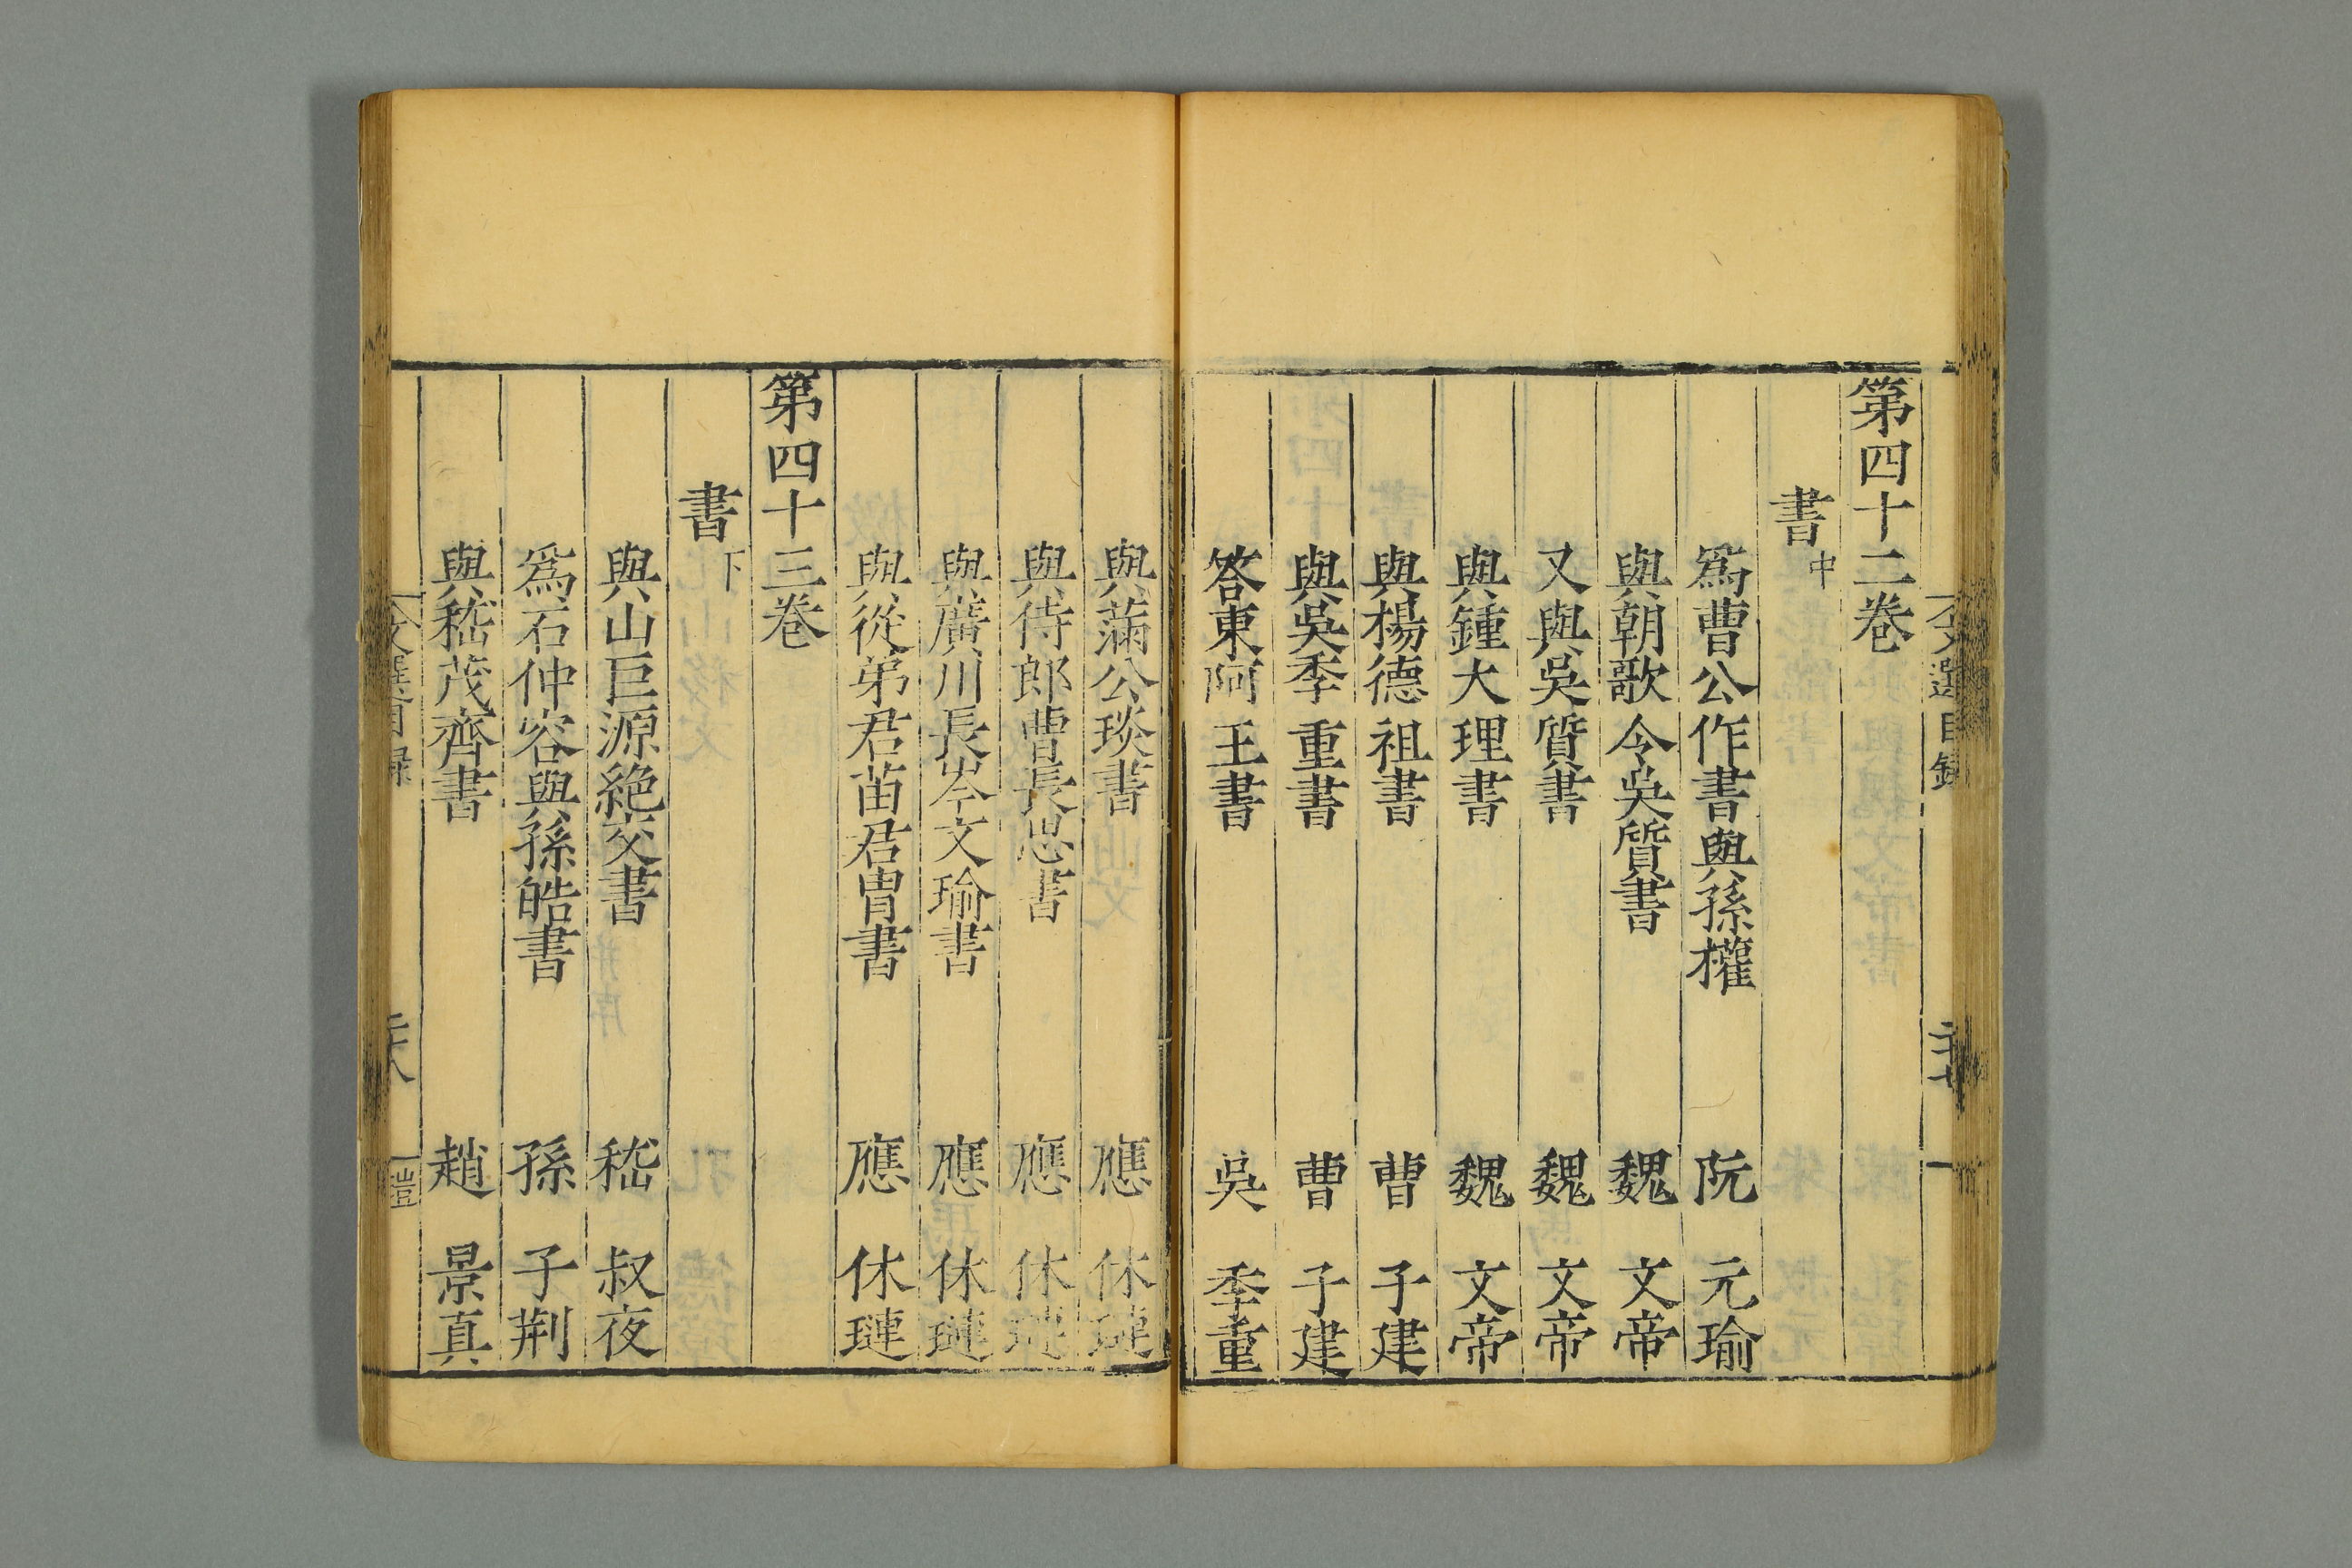 第四十二卷
書中
爲曹公作書與孫權 阮 元瑜
與朝歌令吳質書 魏 文帝
又與吳質書 魏 文帝
與鍾大理書 魏 文帝
與楊德祖書 曹 子建
與吳季重書 曹 子建
答東阿王書 吳 季重
與滿公琰書 應 休璉
與待郎曹長思書 應 休璉
與廣川長岑文瑜書 應 休璉
與從弟君苗君胄書 應 休璉
第四十三卷
書下
與山巨源絕交書 嵇 叔夜
爲石仲容與孫皓書 孫 子荆
與嵇茂齊書 趙 景真
文選目錄